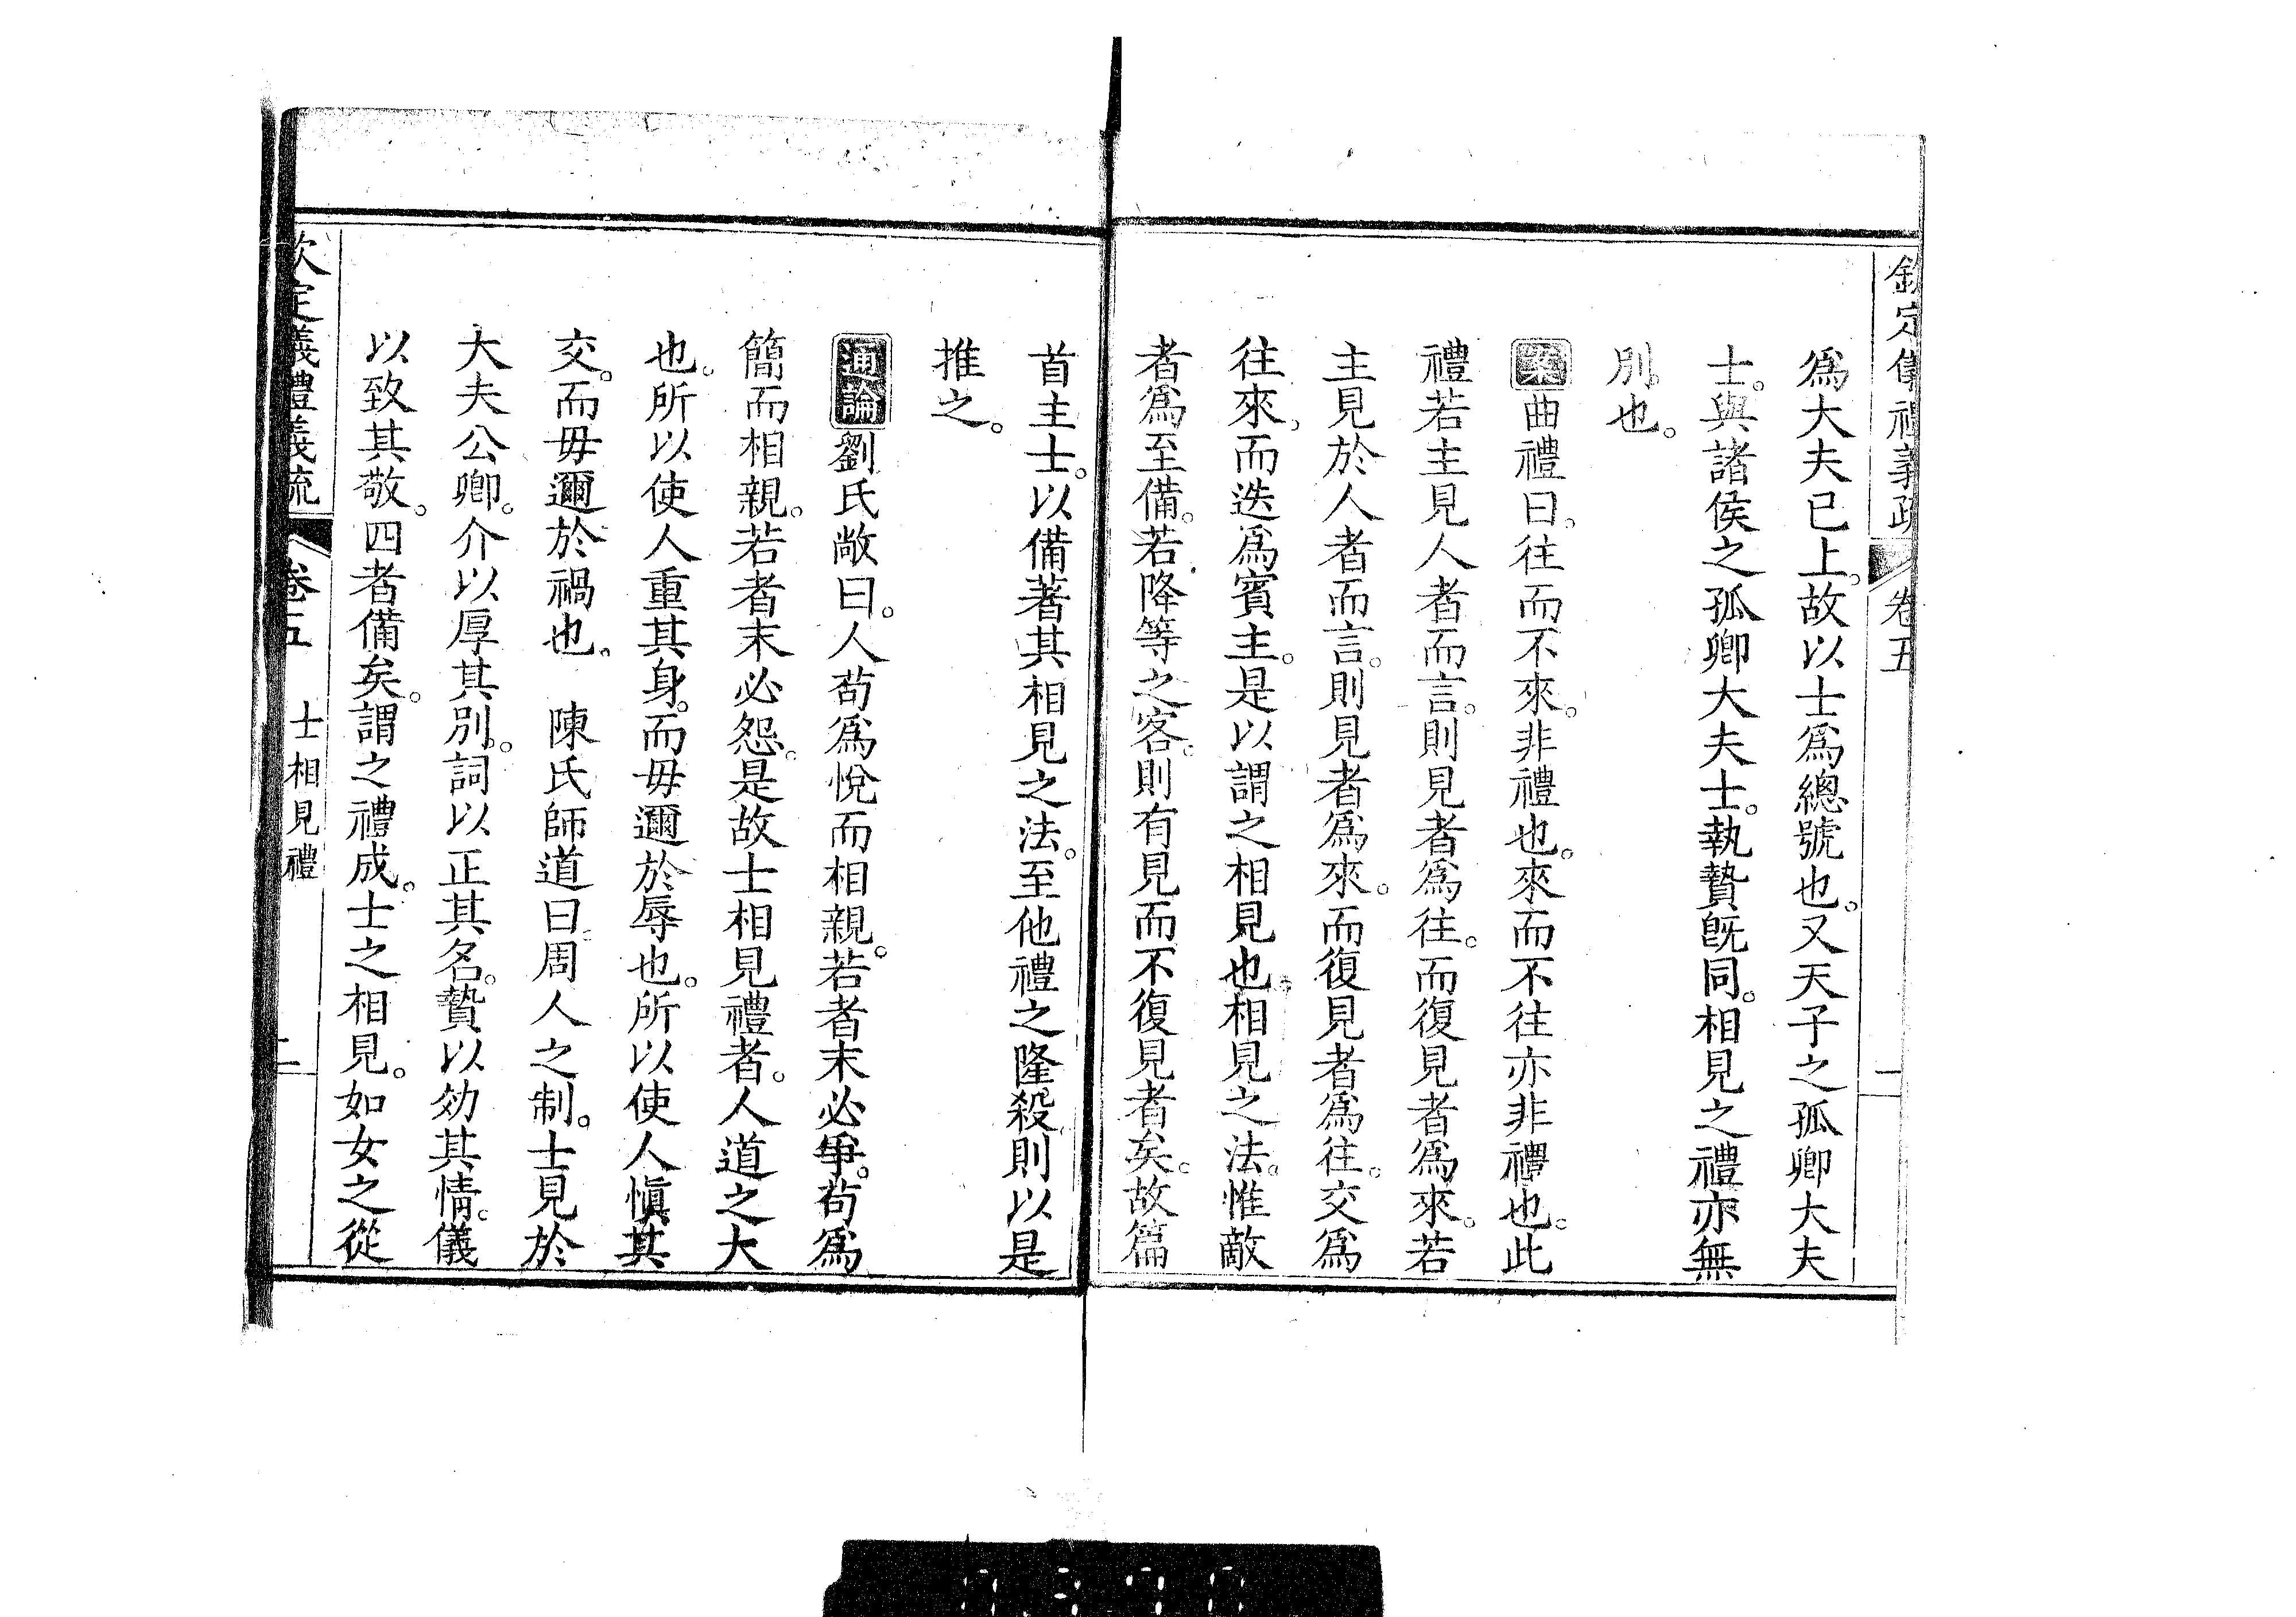 欽定儀禮義疏 卷五 一
爲大夫已上。故以士爲總號也。又天子之孤卿大夫
士。與諸侯之孤卿大夫士。執贄旣同。相見之禮亦無
別也。
案曲禮曰。往而不來。非禮也。來而不往亦非禮也。此
禮若主見人者而言。則見者爲往。而復見者爲來。若
主見於人者而言。則見者爲來。而復見者爲往。交爲
往來。而迭爲賓主。是以謂之相見也。相見之法。惟敵
者爲至備。若降等之客。則有見而不復見者矣。故篇
首主士。以備著其相見之法。至他禮之隆殺則以是
推之。
通論劉氏敞曰。人苟爲悅而相親。若者末必爭。苟爲
簡而相親。若者末必怨。是故士相見禮者。人道之大
也。所以使人重其身。而毋邇於辱也。所以使人愼其
交。而毋邇於禍也。 陳氏師道曰。周人之制。士見於
大夫公卿。介以厚其別。詞以正其名。贄以効其情。儀
以致其敬。四者備矣。謂之禮成。士之相見。如女之從
欽定儀禮義疏 卷五 士相見禮 二